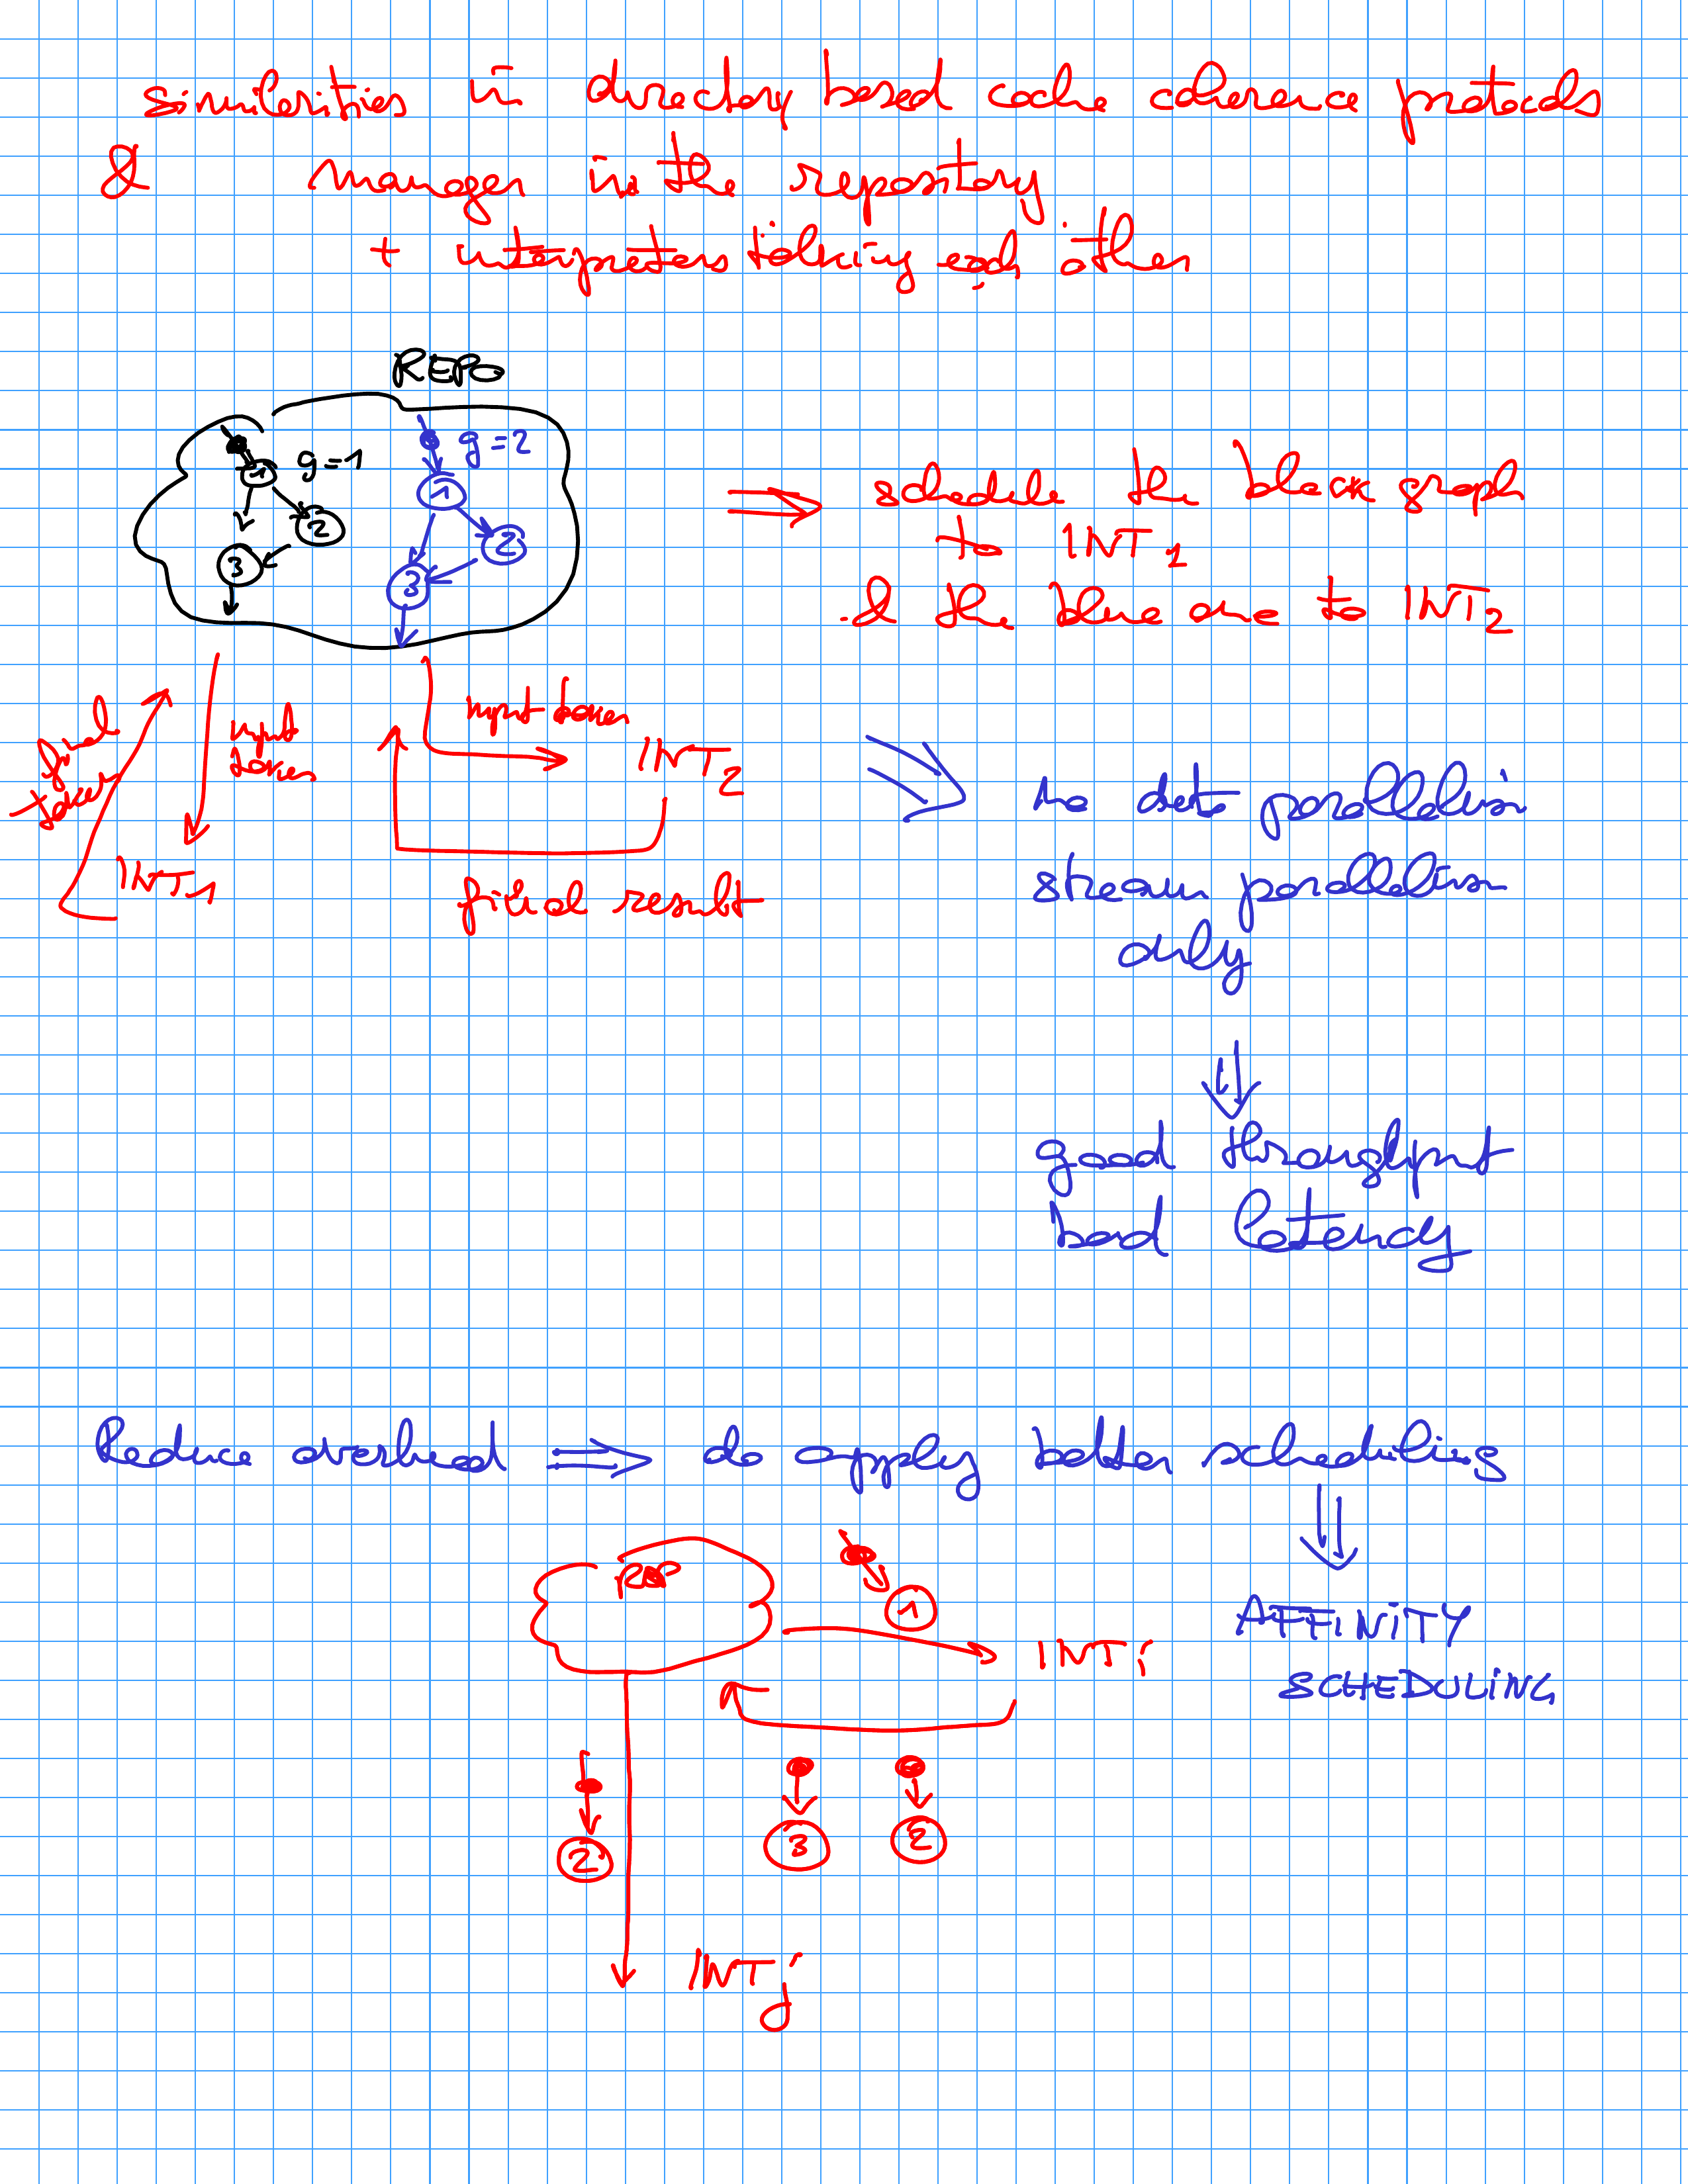 similarities in directory based cache coherence protocols
& manager in the repository
+ interpreters talking each other
REPO
g=1
g=2
1
1
2
2
3
3
⇒ schedule the black graph
to INT1
& the blue one to INT2
final
token
input
token
input token
INT2
INT1
final result
no data parallelism
stream parallelism
only
good throughput
bad latency
Reduce overhead ⇒ do apply better scheduling
AFFINITY
SCHEDULING
1
INTi
2
3
2
INTj